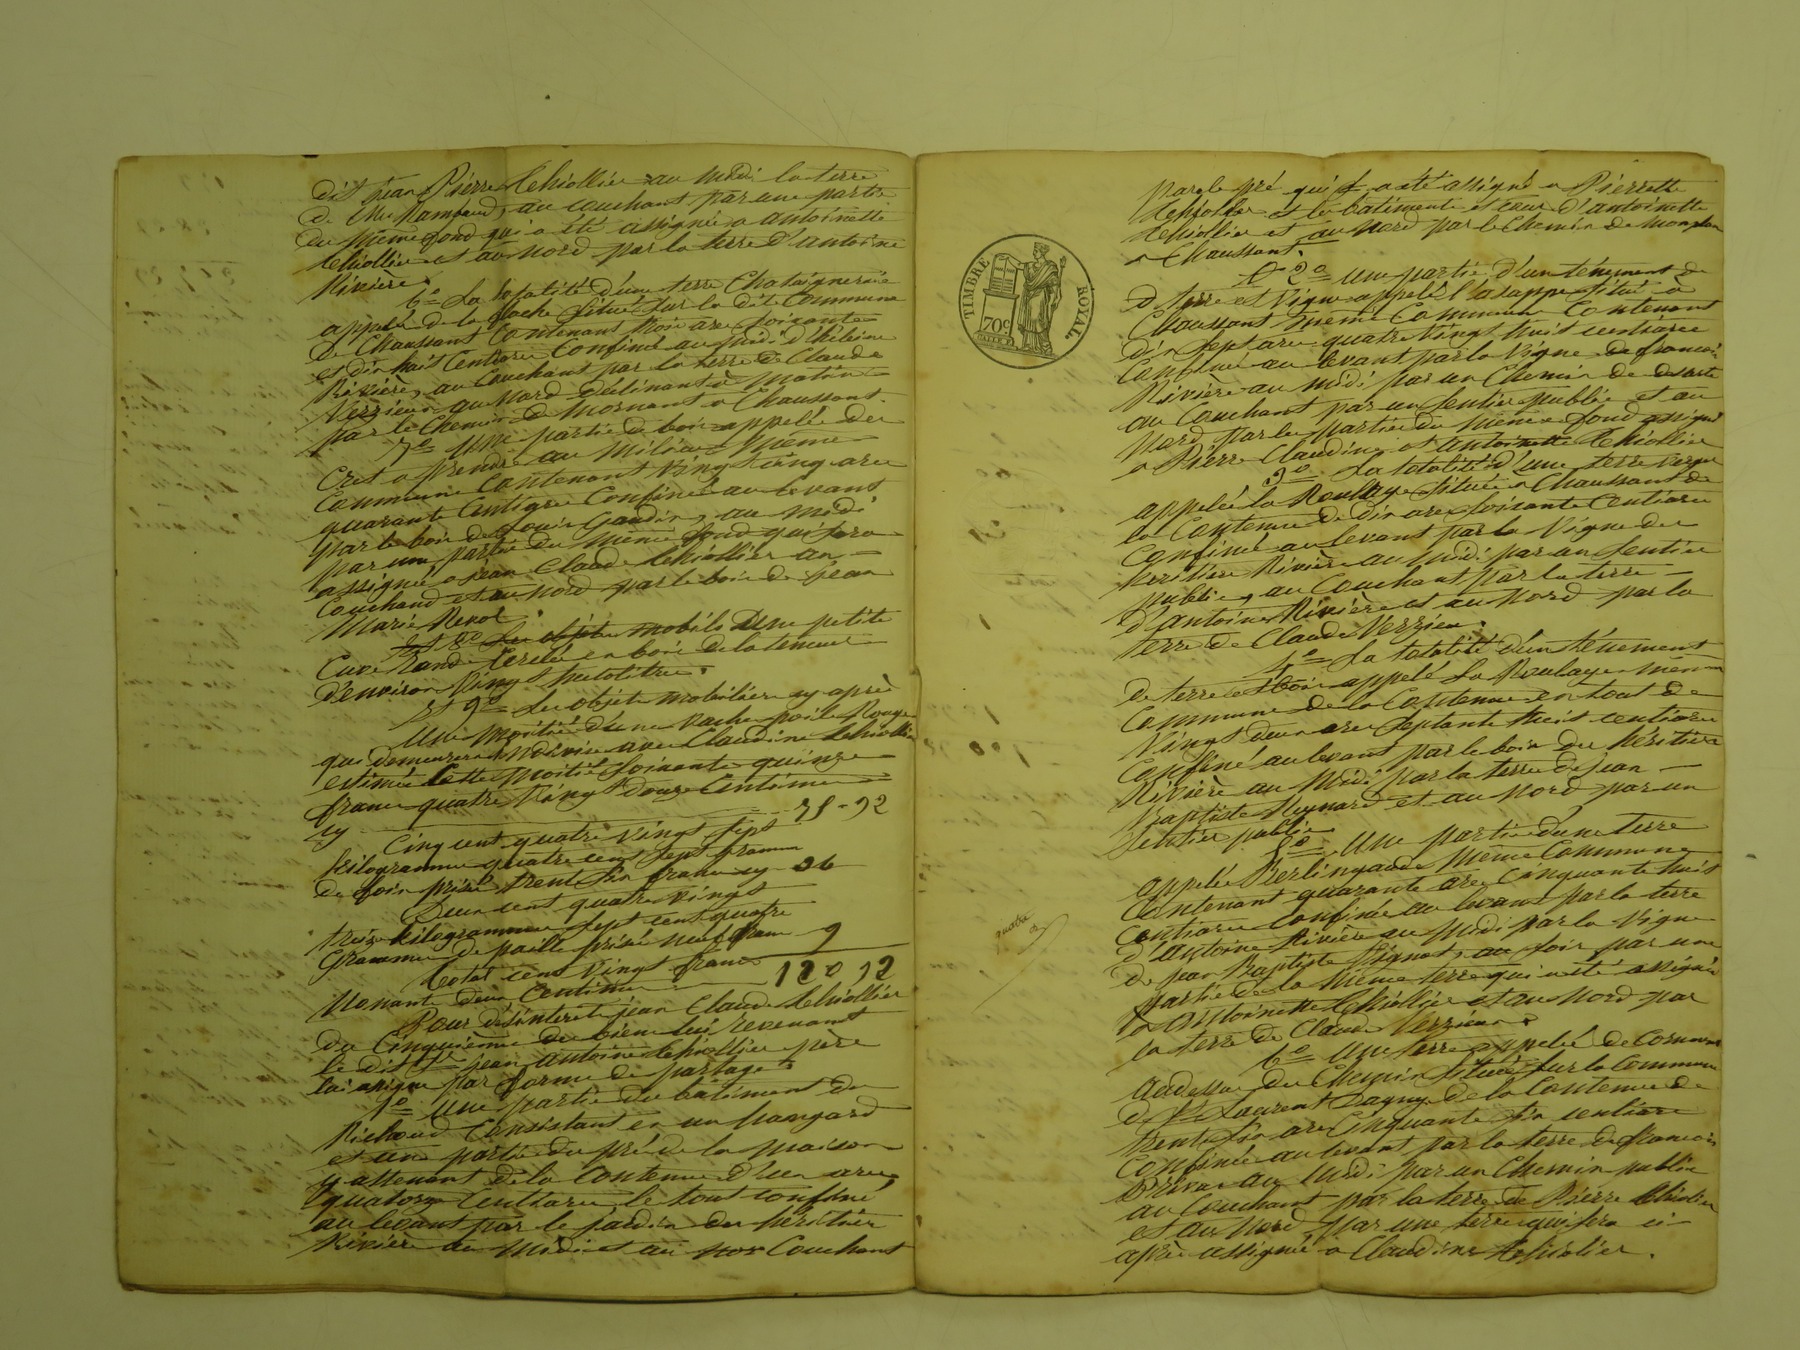 dit jean Pierre Lchiollier au midi la terre
de Mr Rambaud, au couchant par une partie
du même fond qui a été assignée a antoinette
Lchiollier et au nord par la terre d'antoine
Rivière.
6° La totalité d'une terre Chataigneraie
appelée de la Roche située sur la dite Commune
de Chaussant Contenant trois ares soixante
et dix huit Centiares Confiné au midi d'
Rivière, au Couchant par la terre de Claude
Verzieux au Nord déclinant à matin
par le Chemin de Mornant a Chaussant.
7° Une partie de bois appelée du
Crest a prendre au Milieu même
Commune Contenant Vingt Cinq ares
quarante Centiares Confiné au levant
par le bois de Louis Gaudin, au midi
par une partie du même fond qui sera
assignée a jean Claude Lchiollier au
Couchand et au Nord par le bois de Jean
Marie Revol
Et 8° Les objets mobils Une petite
Cuve Ronde Cerclée en bois de la teneur
d'environ Vingt hectolitres.
Et 9° Les objets mobiliers cy après
Une moitié d'une Vache poil Rouge
qui demeurera indivise avec Claudine Lchiollier
estimée Cette moitié Soixante quinze
francs quatre Vingt Douze Centimes
cy 75-92
Cinq cent quatre Vingt Sept
kilogrammes quatre cent Sept grammes
de foin prisé trente Six francs cy 36
Deux cent quatre Vingt
treize kilogrammes Sept cent quatre
grammes de paille prisé neuf francs 9
Total cent Vingt francs 120 92
Nonante deux Centimes
Pour désinteret jean Claude Lchiollier
du Cinquième des biens lui revenant
le dit Sr jean antoine Lchiollier père
lui assigne par forme de partage
1° Une partie du bâtiment du
Richoud Consistant en un hangard
et une partie du pré de la maison
y attenant de la Contenue d'un are
quatorze Centiares, le tout confiné
au levant par le jardin des héritiers
Rivière au Midi et au Nor Couchant
TIMBRE ROYAL
70c
par le pré qui a été assigné a Pierrette
Lchiollier et les batiments et cour d'antoinette
Lchiollier et au Nord par le Chemin de
a Chaussant.
2° Une partie d'un ténement de
terre et Vigne appelé situé a
Chaussant même Commune Contenant
dix Sept ares quatre Vingt huit centiares
Confiné au levant par la Vigne de francois
Rivière au midi par un Chemin de deserte
au Couchant par un Sentier public et au
Nord par les parties du même fond assigné
a Pierre Claudine et Antoinette Lchiollier
3° La totalité d'une terre Verger
appelée la Roulaye située a Chaussant de
la Contenue de Dix ares Soixante Centiares
Confiné au levant par la Vigne des
heritiers Rivière au Midi par un Sentier
public, au Couchant par la terre
d'antoine Rivière et au Nord par la
terre de Claude Verzieu.
4° La totalité d'un ténement
de terre et bois appelé La Roulaye même
Commune de la Contenue en tout de
Vingt deux ares Septante trois centiares
Confiné au levant par le bois des héritiers
Rivière au Midi par la terre de Jean
Baptiste Reynard et au Nord par un
Sentier public
5° Une partie d'une terre
appelée même Commune
Contenant quarante ares Cinquante huit
Centiares Confinée au levant par la terre
d'antoine Rivière au Midi par la Vigne
de jean Baptiste Pignot, au Soir par une
partie de la même terre qui a été assignée
a Antoinette Lchiollier et au Nord par
la terre de Claude Verzieux.
quatre
6° Une terre appelée de
audessus du Chemin située sur la Commune
de St Laurent Dagny de la Contenue de
trente Six ares Cinquante Six centiares
Confinée au levant par la terre de francois
au Midi par un Chemin public
au Couchant par la terre de Pierre Lchiollier
et au Nord par une terre qui sera ci-
après assignée a Claudine Lchiollier.